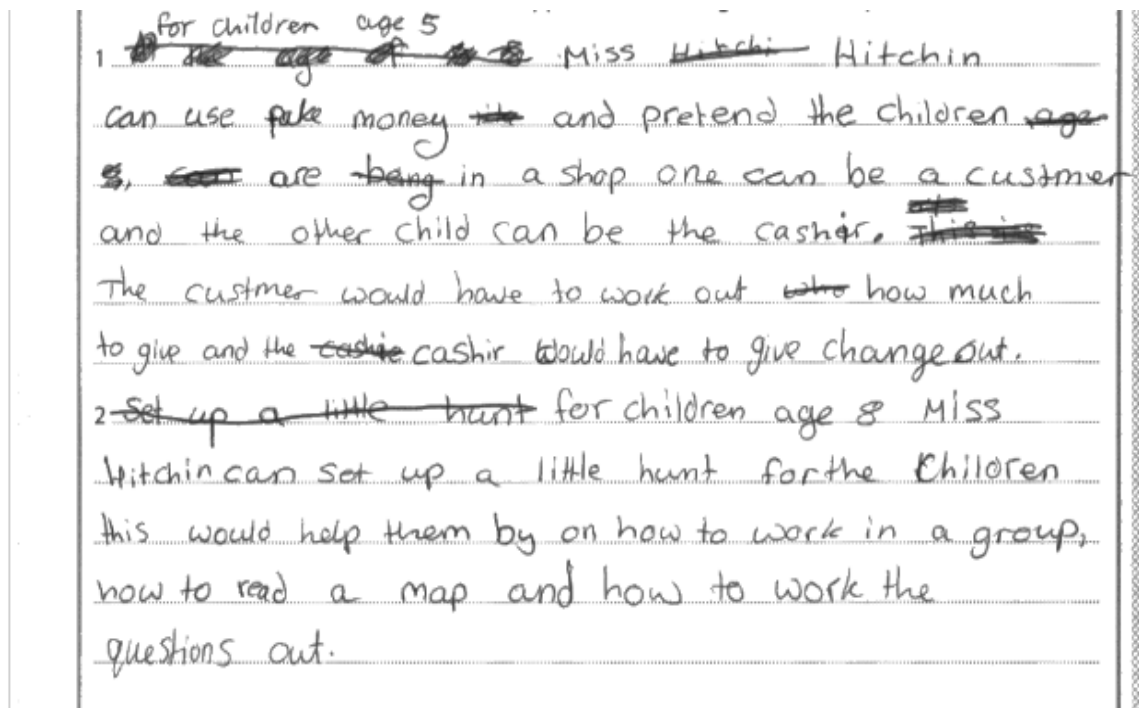 for children age 5
1 Miss Hitchin
can use fake money and pretend the children
are in a shop one can be a custmer
and the other child can be the cashir.
The custmer would have to work out how much
to give and the cashir would have to give change out.
2 for children age 8 Miss
Hitchin can set up a little hunt for the children
this would help them by on how to work in a group,
how to read a map and how to work the
questions out.